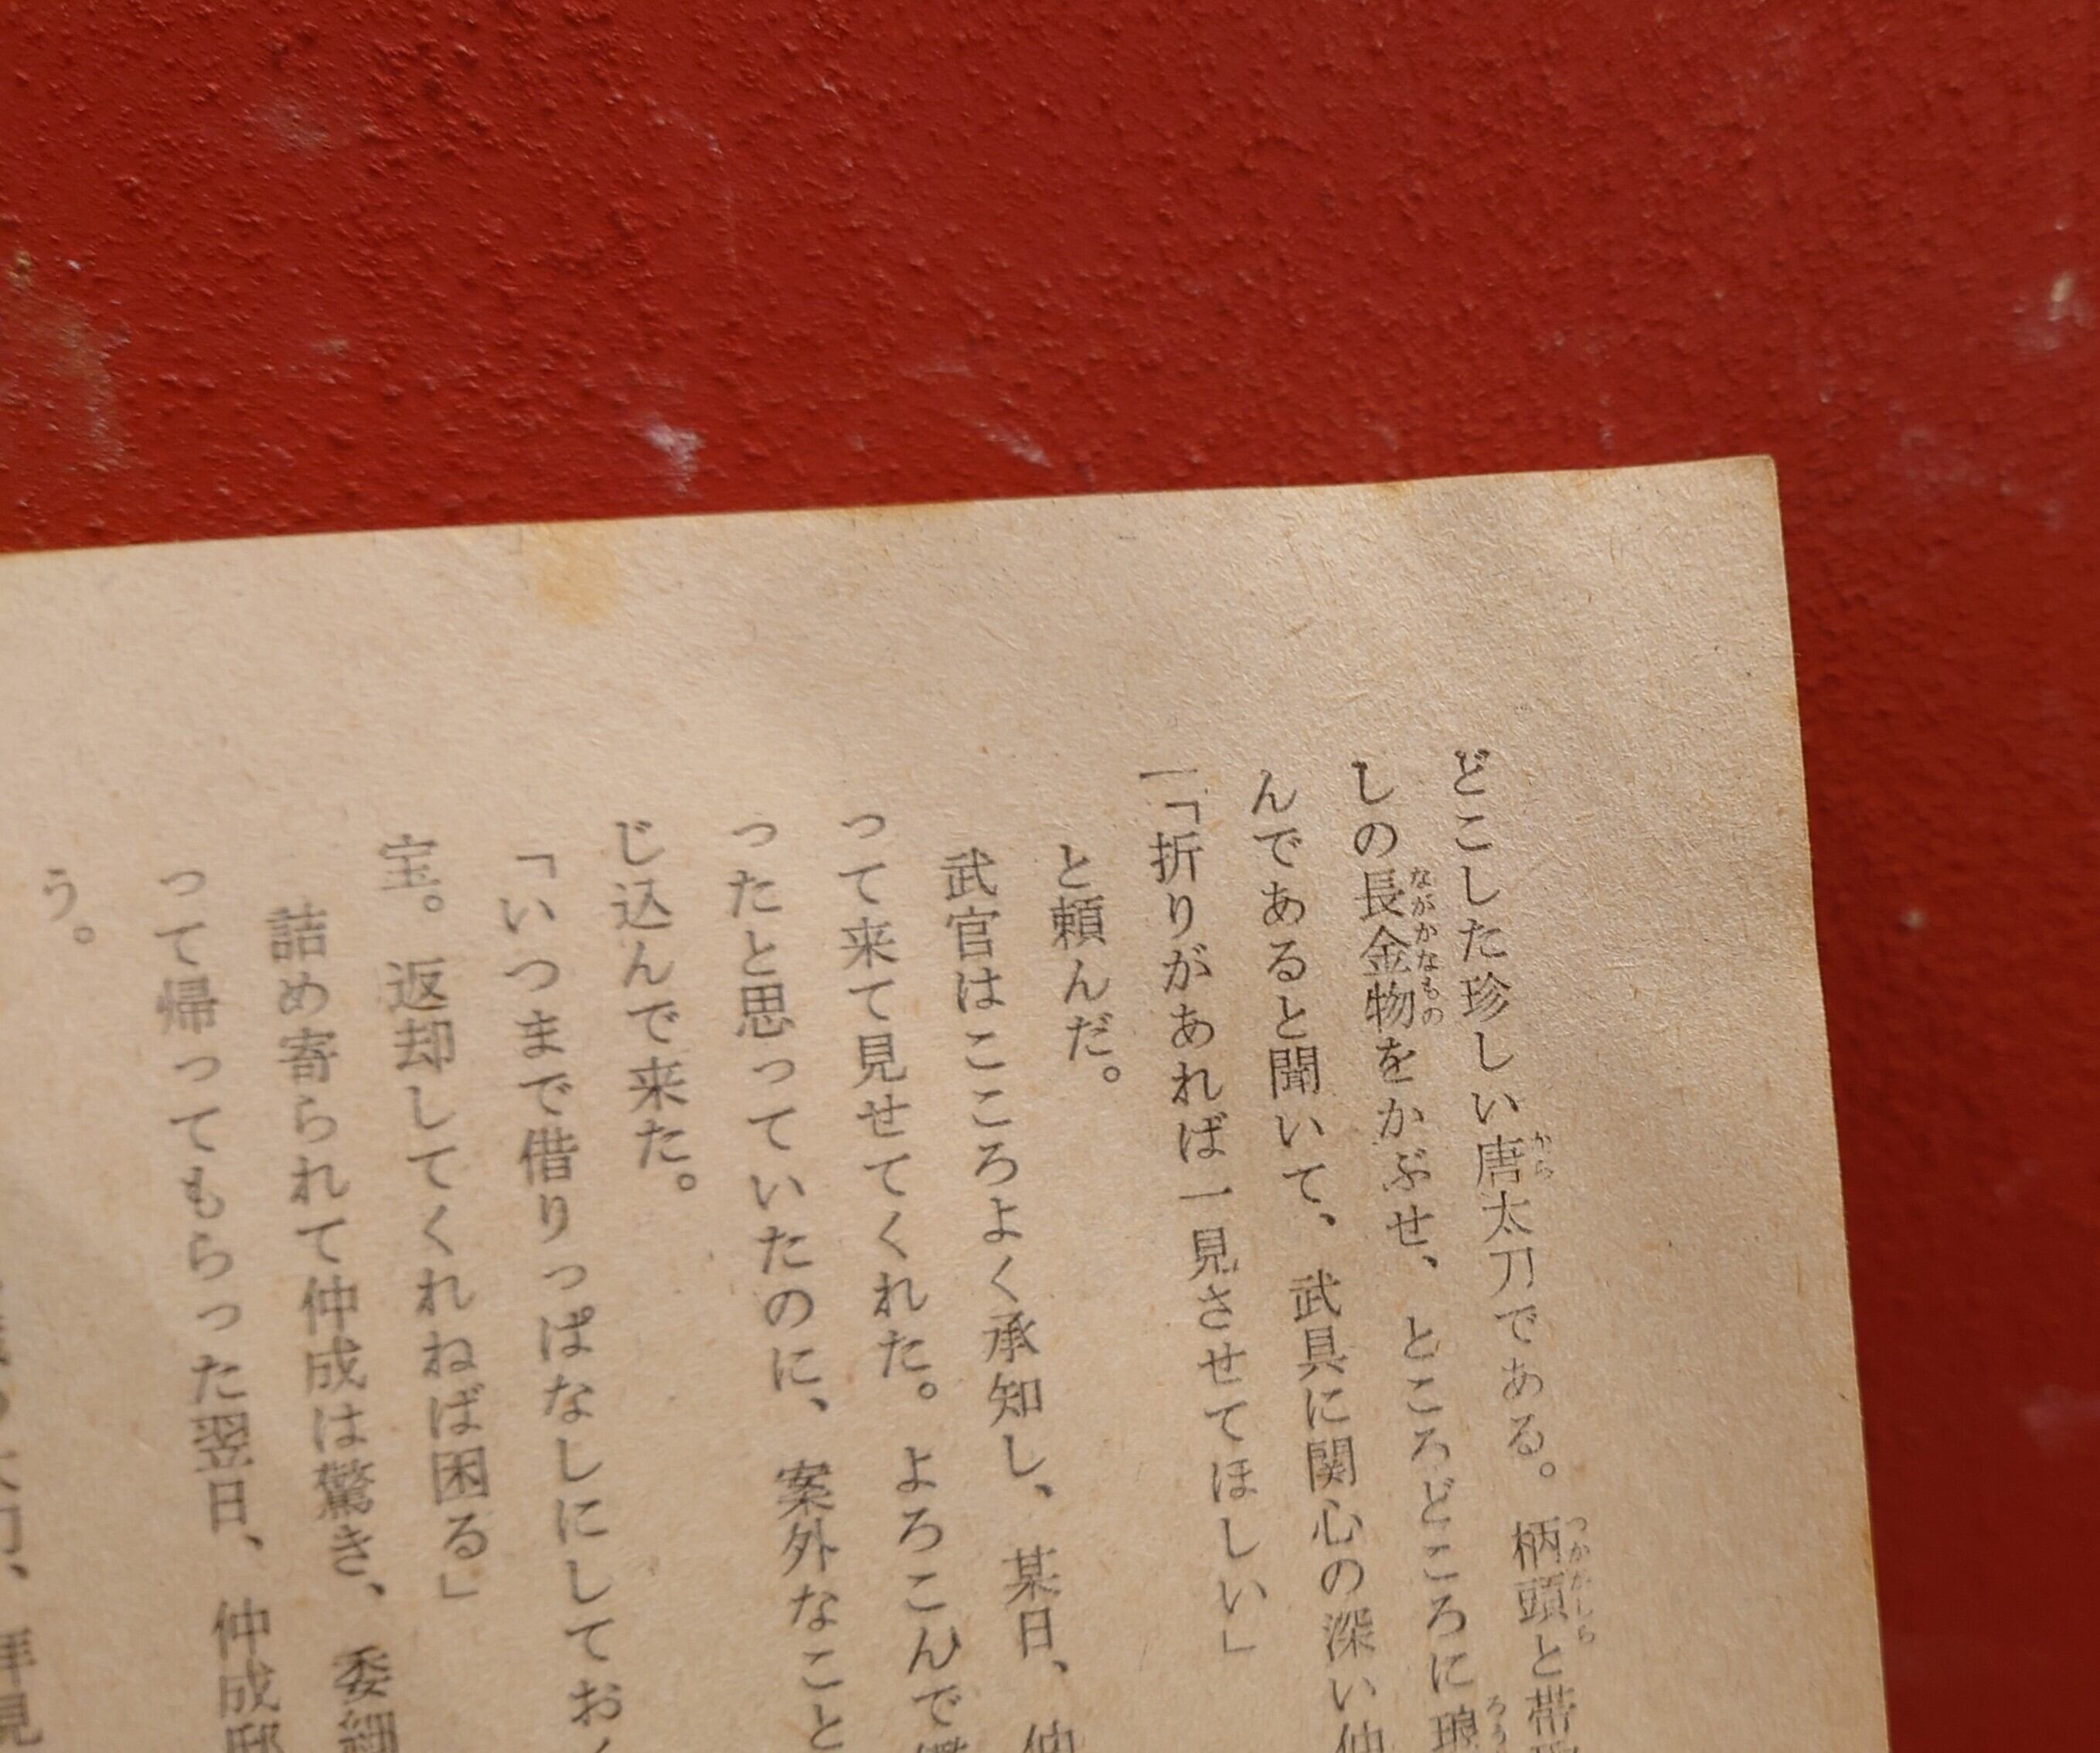 どこした珍しい唐太刀である。柄頭と帯
しの長金物をかぶせ、ところどころに琅
んであると聞いて、武具に関心の深い仲
「折りがあれば一見させてほしい」
と頼んだ。
武官はこころよく承知し、某日、仲
って来て見せてくれた。よろこんで
ったと思っていたのに、案外なこと
じ込んで来た。
「いつまで借りっぱなしにしておく
宝。返却してくれねば困る」
詰め寄られて仲成は驚き、委細
って帰ってもらった翌日、仲成邸
う。
太刀、拝見